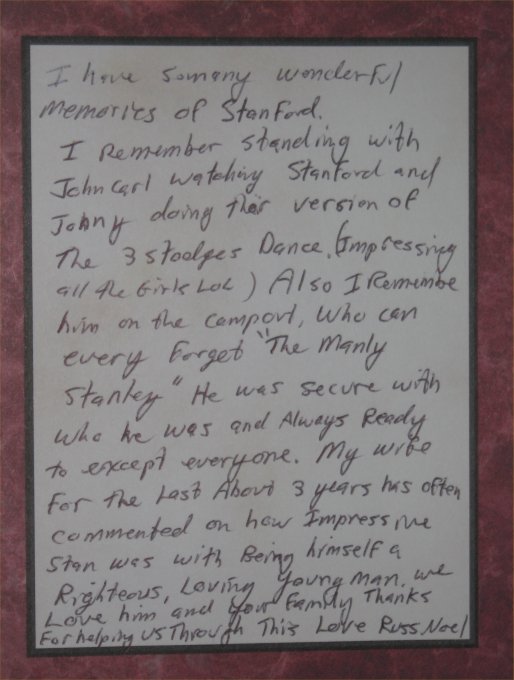 I have somany wonderful
memories of Stanford.
I Remember standing with
John Carl watching Stanford and
Johny doing their version of
The 3 stooges Dance. (Impressing
all the Girls LoL) Also I Remember
him on the campout, who can
every Forget "The Manly
Stanley" He was secure with
who he was and Always Ready
to except everyone. My wife
For the Last About 3 years has often
commented on how Impressive
Stan was with Being himself a
Righteous, Loving young man. we
Love him and your Family Thanks
For helping us Through This Love Russ, Noel